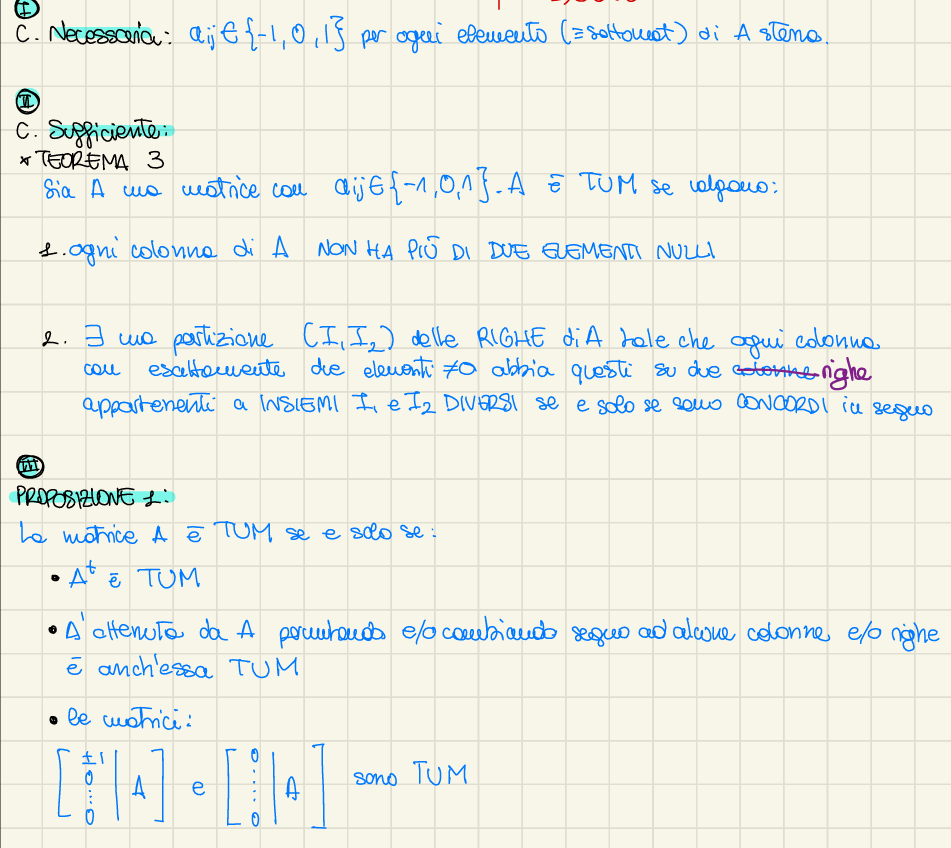 I
C. Necessaria: aij ∈ {-1, 0, 1} per ogni elemento (≡ sottomat) di A stessa.
II
C. Sufficiente:
* TEOREMA 3
Sia A una matrice con aij ∈ {-1, 0, 1}. A è TUM se valgono:
1. ogni colonna di A NON HA PIÙ DI DUE ELEMENTI NULLI
2. ∃ una partizione (I, I₂) delle RIGHE di A tale che ogni colonna
con esattamente due elementi ≠0 abbia questi su due colonne righe
appartenenti a INSIEMI I₁ e I₂ DIVERSI se e solo se sono CONCORDI in segno
III
PROPOSIZIONE 1:
La matrice A è TUM se e solo se:
• Aᵗ è TUM
• A' ottenuta da A permutando e/o cambiando segno ad alcune colonne e/o righe
è anch'essa TUM
• le matrici:
[ ±1 0 ... 0 | A ] e [ 0 ... 0 | A ] sono TUM